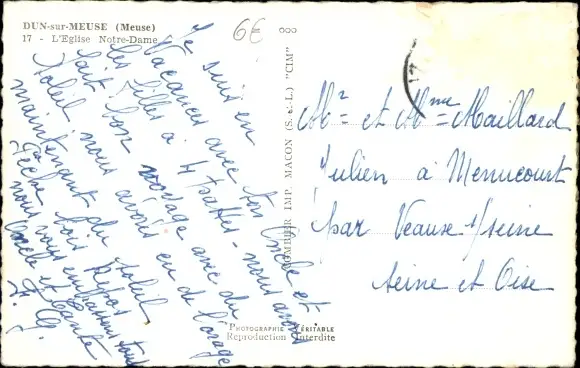 DUN-sur-MEUSE (Meuse)
17 - L'Eglise Notre-Dame
6€
Je suis en
Vacances avec ton Oncle et
les filles à 4 pattes - nous avons
fait bon voyage avec du
Soleil nous avons eu de l'orage
maintenant du soleil
Pêche bois Repas
nous vous embrassons tous
Oncle et Tante
COMBIER IMP. MACON (S.-A.-L.) "CIM"
Mr et Mme Maillard
Julien à Menucourt
par Veaux s/seine
Seine et Oise
PHOTOGRAPHIE VÉRITABLE
Reproduction Interdite